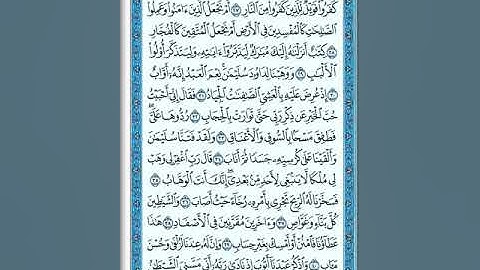 كَفَرُوا۟ فَوَيْلٌ لِّلَّذِينَ كَفَرُوا۟ مِنَ ٱلنَّارِ ٢٧ أَمْ نَجْعَلُ ٱلَّذِينَ ءَامَنُوا۟ وَعَمِلُوا۟
ٱلصَّٰلِحَٰتِ كَٱلْمُفْسِدِينَ فِى ٱلْأَرْضِ أَمْ نَجْعَلُ ٱلْمُتَّقِينَ كَٱلْفُجَّارِ
٢٨ كِتَٰبٌ أَنزَلْنَٰهُ إِلَيْكَ مُبَٰرَكٌ لِّيَدَّبَّرُوٓا۟ ءَايَٰتِهِۦ وَلِيَتَذَكَّرَ أُو۟لُوا۟
ٱلْأَلْبَٰبِ ٢٩ وَوَهَبْنَا لِدَاوُۥدَ سُلَيْمَٰنَ نِعْمَ ٱلْعَبْدُ إِنَّهُۥٓ أَوَّابٌ
٣٠ إِذْ عُرِضَ عَلَيْهِ بِٱلْعَشِىِّ ٱلصَّٰفِنَٰتُ ٱلْجِيَادُ ٣١ فَقَالَ إِنِّىٓ أَحْبَبْتُ
حُبَّ ٱلْخَيْرِ عَن ذِكْرِ رَبِّى حَتَّىٰ تَوَارَتْ بِٱلْحِجَابِ ٣٢ رُدُّوهَا عَلَىَّ
فَطَفِقَ مَسْحًۢا بِٱلسُّوقِ وَٱلْأَعْنَاقِ ٣٣ وَلَقَدْ فَتَنَّا سُلَيْمَٰنَ
وَأَلْقَيْنَا عَلَىٰ كُرْسِيِّهِۦ جَسَدًا ثُمَّ أَنَابَ ٣٤ قَالَ رَبِّ ٱغْفِرْ لِى وَهَبْ
لِى مُلْكًا لَّا يَنۢبَغِى لِأَحَدٍ مِّنۢ بَعْدِىٓ إِنَّكَ أَنتَ ٱلْوَهَّابُ ٣٥
فَسَخَّرْنَا لَهُ ٱلرِّيحَ تَجْرِى بِأَمْرِهِۦ رُخَآءً حَيْثُ أَصَابَ ٣٦ وَٱلشَّيَٰطِينَ
كُلَّ بَنَّآءٍ وَغَوَّاصٍ ٣٧ وَءَاخَرِينَ مُقَرَّنِينَ فِى ٱلْأَصْفَادِ ٣٨ هَٰذَا
عَطَآؤُنَا فَٱمْنُنْ أَوْ أَمْسِكْ بِغَيْرِ حِسَابٍ ٣٩ وَإِنَّ لَهُۥ عِندَنَا لَزُلْفَىٰ وَحُسْنَ
مَـَٔابٍ ٤٠ وَٱذْكُرْ عَبْدَنَآ أَيُّوبَ إِذْ نَادَىٰ رَبَّهُۥٓ أَنِّى مَسَّنِىَ ٱلشَّيْطَٰنُ